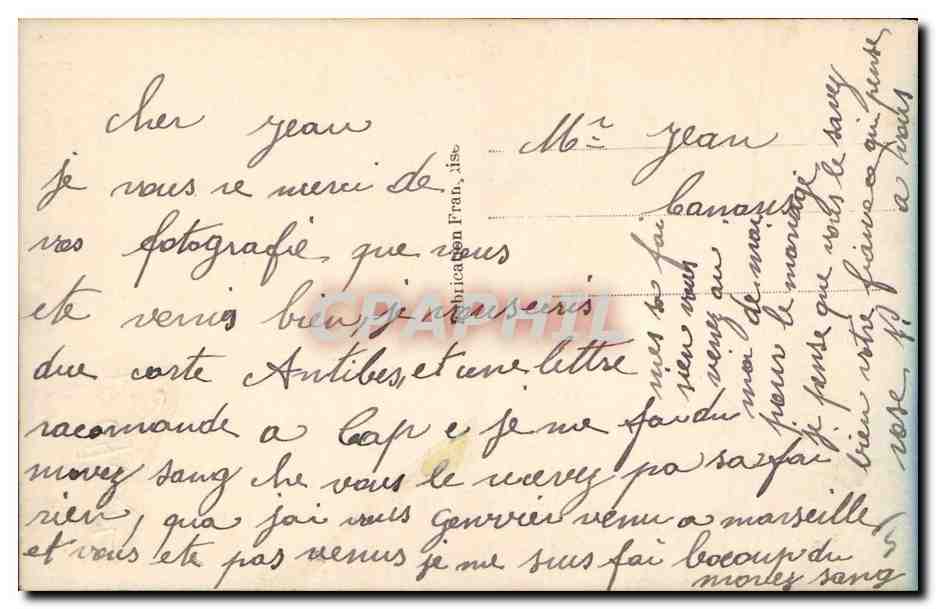 cher Jean
je vous re merci de
vos fotografie que vous
ete venis bien, je vous cris
due carte Antibes, et une lettre
racomande a Cap e je me fai du
movez sang che vous le recevez pa sa fai
rien, qua jai vous genvier venu a marseille
et vous ete pas venus je me suis fai bocoup du
movez sang
Mr Jean
Canons
mes sa fai
rien vous
venez au
moi de mai
pour le mariage
je pense que vous le savez
bien votre fiancee qui pense
a vous
rose
Fabrication Française
CPAPHIL